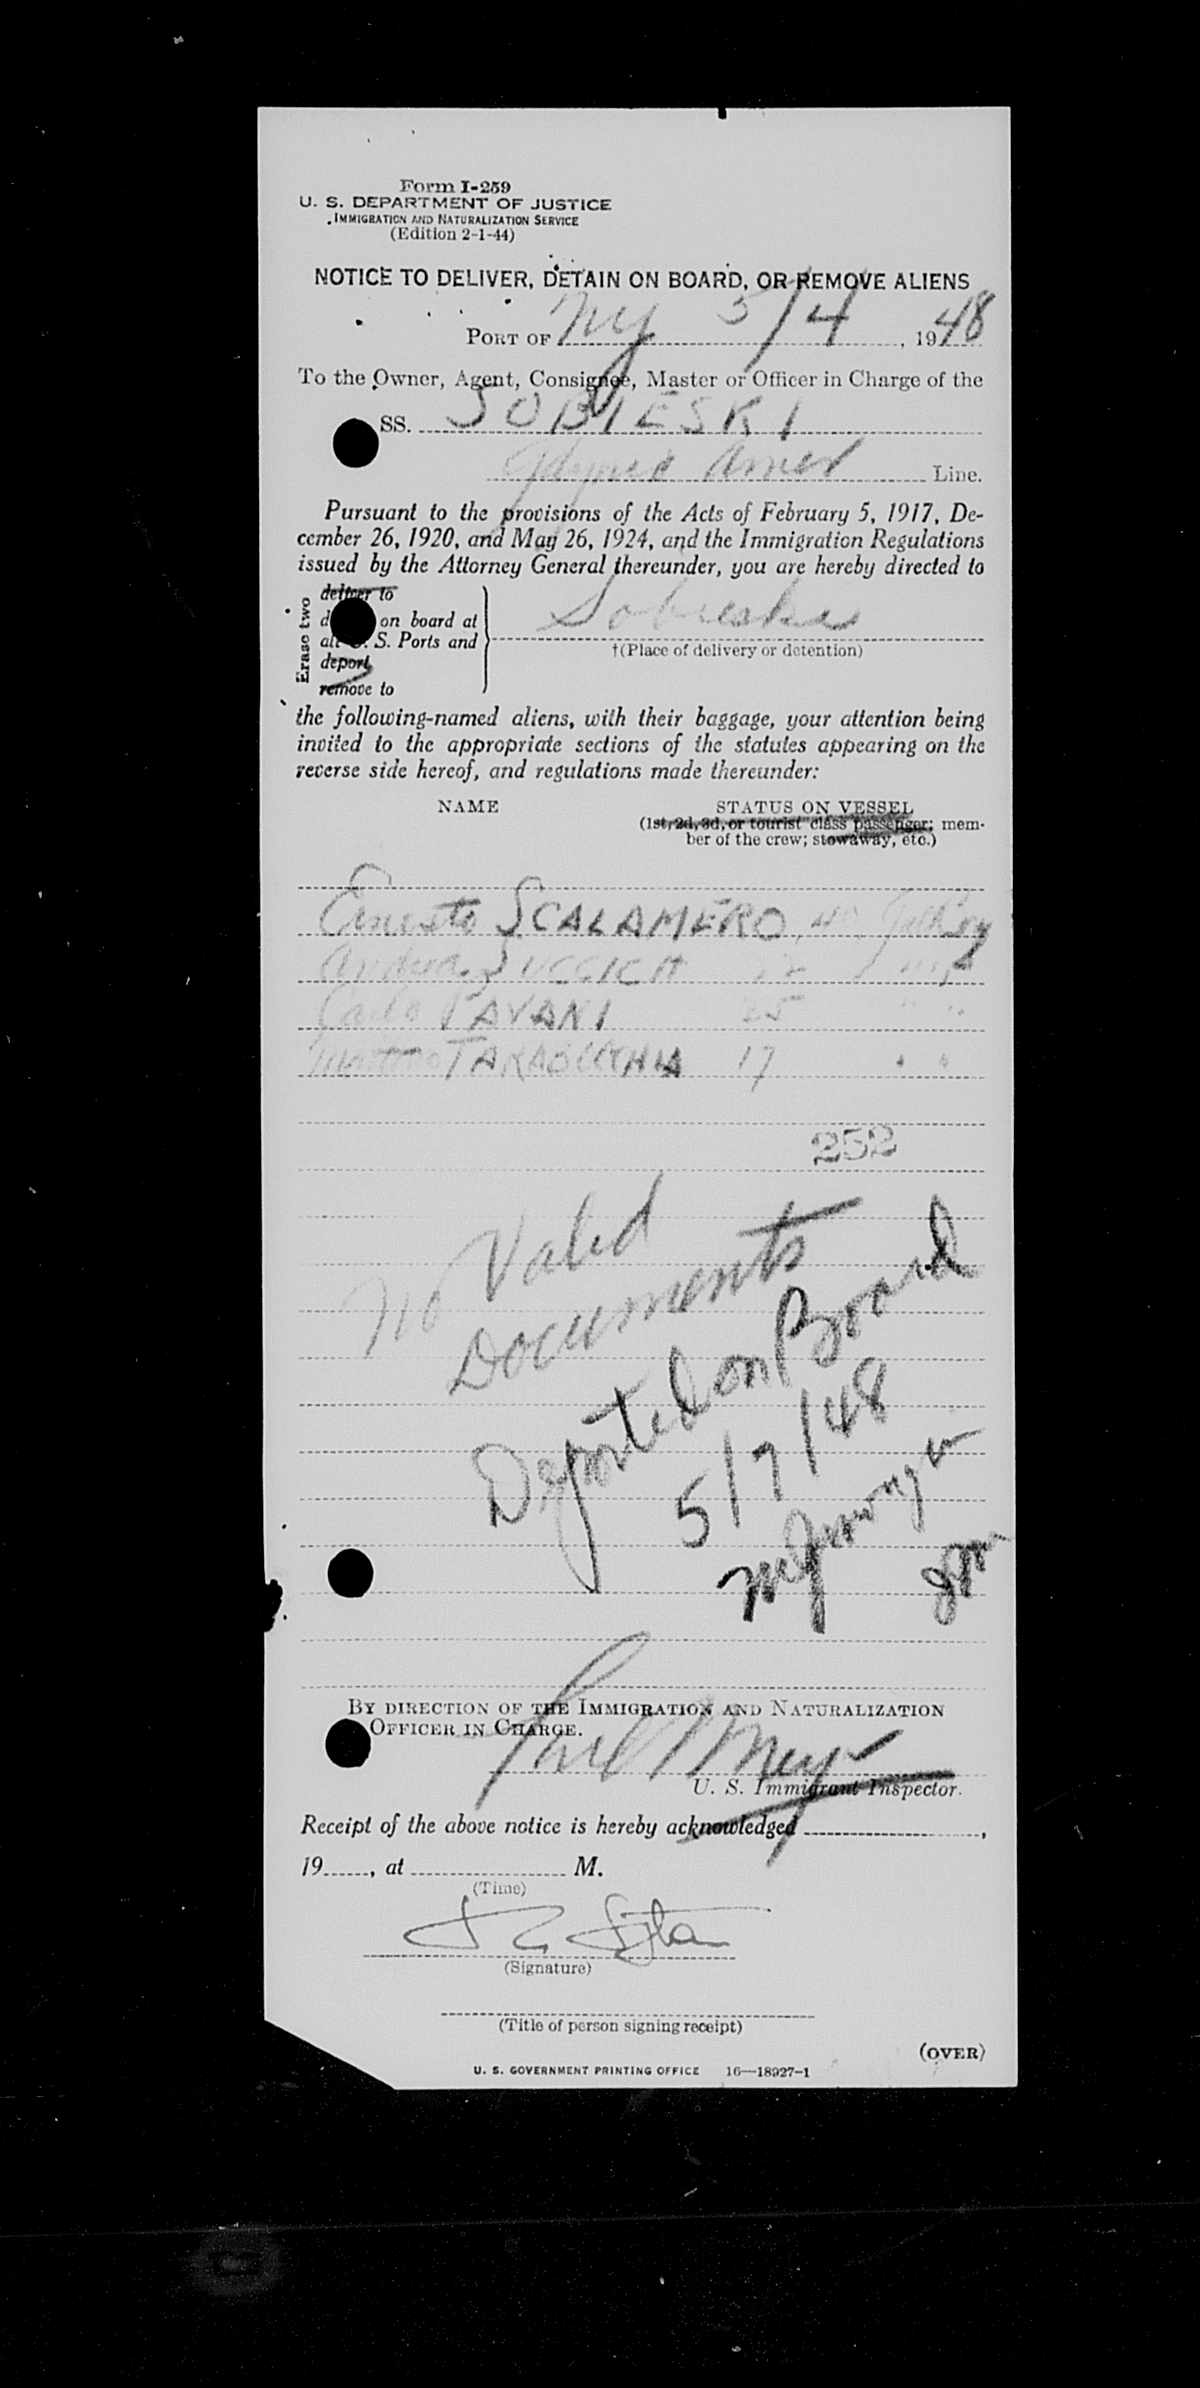 Form I-259
U. S. DEPARTMENT OF JUSTICE
IMMIGRATION AND NATURALIZATION SERVICE
(Edition 2-1-44)
NOTICE TO DELIVER, DETAIN ON BOARD, OR REMOVE ALIENS
PORT OF NY 5/4, 1948
To the Owner, Agent, Consignee, Master or Officer in Charge of the
SS. SOBIESKI
Gdynia Amer Line.
Pursuant to the provisions of the Acts of February 5, 1917, De-
cember 26, 1920, and May 26, 1924, and the Immigration Regulations
issued by the Attorney General thereunder, you are hereby directed to
Erase two
deliver to
on board at
all U. S. Ports and
deport
remove to
Sobieski
†(Place of delivery or detention)
the following-named aliens, with their baggage, your attention being
invited to the appropriate sections of the statutes appearing on the
reverse side hereof, and regulations made thereunder:
NAME STATUS ON VESSEL
(1st, 2d, 3d, or tourist class passenger; mem-
ber of the crew; stowaway, etc.)
Ernesto SCALAMERO, 40
Andrea
Carlo PAVANI 25 " "
17 " "
252
No Valid
Documents
Deported on Board
5/7/48
BY DIRECTION OF THE IMMIGRATION AND NATURALIZATION
OFFICER IN CHARGE.
U. S. Immigrant Inspector.
Receipt of the above notice is hereby acknowledged ,
19 , at M.
(Time)
(Signature)
(Title of person signing receipt)
(OVER)
U. S. GOVERNMENT PRINTING OFFICE 16—18927-1